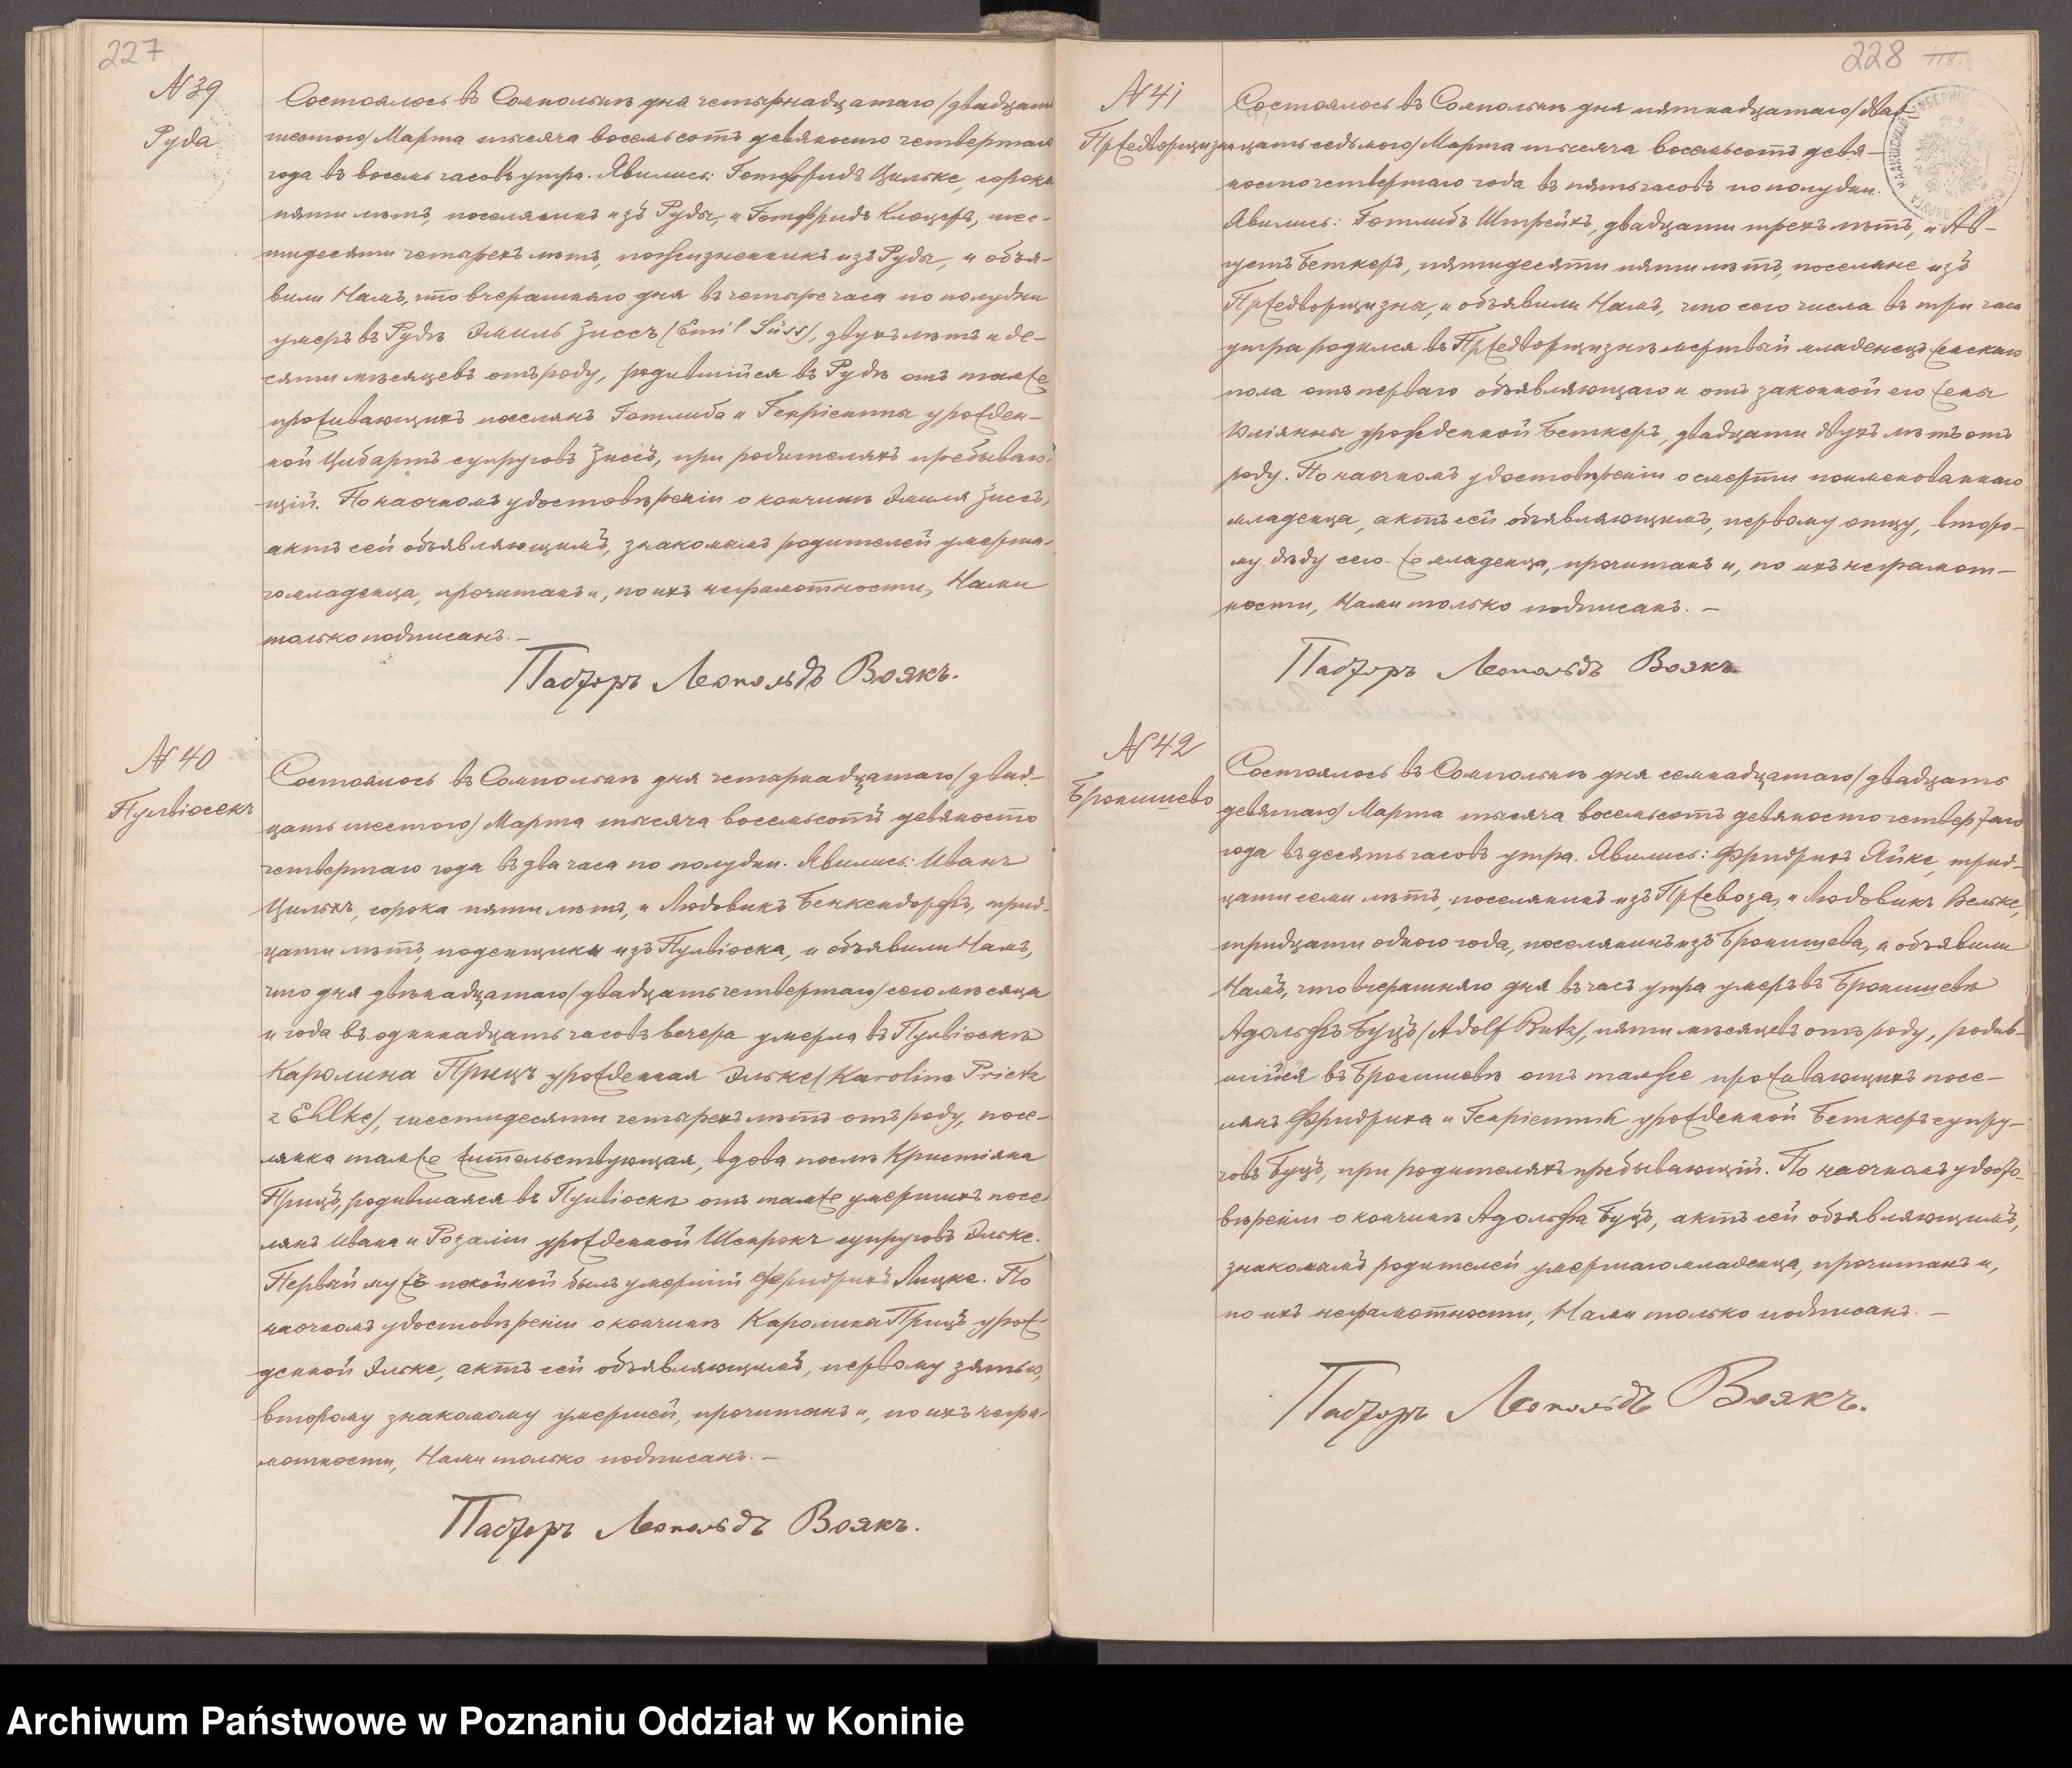 227
N 39
Руда
Состоялось въ Сомпольнѣ дня четырнадцатаго /двадцать
шестого/ Марта тысяча восемьсотъ девяносто четвертаго
года въ восемь часовъ утра. Явились: Готфридъ Цильке, сорока
пяти лѣтъ, поселянинъ изъ Руды, и Готфридъ Клоцеръ, шес-
тидесяти четырехъ лѣтъ, пожизненникъ изъ Руды, и объя-
вили Намъ, что вчерашняго дня въ четыре часа по полудни
умеръ въ Рудѣ Эмиль Зиссъ /Emil Süss/, двухъ лѣтъ и де-
сяти мѣсяцевъ отъ роду, родившійся въ Рудѣ отъ тамже
проживающихъ поселянъ Готлиба и Генріетты урожден-
ной Цибартъ супруговъ Зиссъ, при родителяхъ пребываю-
щій. По наочномъ удостовѣреніи о кончинѣ Эмиля Зиссъ,
актъ сей объявляющимъ, знакомымъ родителей умерша-
го младенца, прочитанъ и, по ихъ неграмотности, Нами
только подписанъ. –
Пасторъ Леопольдъ Воякъ.
N 40
Пулвіосекъ
Состоялось въ Сомпольнѣ дня четырнадцатаго /двад-
цать шестого/ Марта тысяча восемьсотъ девяносто
четвертаго года въ два часа по полудни. Явились: Иванъ
Цилькъ, сорока пяти лѣтъ, и Людовикъ Бенкендорфъ, трид-
цати лѣтъ, поденщики изъ Пулвіоска, и объявили Намъ,
что дня двѣнадцатаго /двадцать четвертаго/ сего мѣсяца
и года въ одиннадцать часовъ вечера умерла въ Пулвіоскѣ
Каролина Прицъ урожденная Эльке /Karolina Prietz
z Ehlke/, шестидесяти четырехъ лѣтъ отъ роду, посе-
лянка тамже жительствующая, вдова послѣ Кристіяна
Прицъ, родившаяся въ Пулвіоскѣ отъ тамже умершихъ посе-
лянъ Ивана и Розаліи урожденной Шенрокъ супруговъ Эльке.
Первый мужъ покойной былъ умершій Фридрихъ Лицке. По
наочномъ удостовѣреніи о кончинѣ Каролины Прицъ урож-
денной Эльке, актъ сей объявляющимъ, первому зятью,
второму знакомому умершей, прочитанъ и, по ихъ негра-
мотности, Нами только подписанъ. –
Пасторъ Леопольдъ Воякъ.
228 118.
N 41
Пржедворщизна
Состоялось въ Сомпольнѣ дня пятнадцатаго /двад-
цать седьмого/ Марта тысяча восемьсотъ девя-
носто четвертаго года въ пять часовъ по полудни.
Явились: Готлибъ Штрейхъ, двадцати трехъ лѣтъ, и Ав-
густъ Беткеръ, пятидесяти пяти лѣтъ, поселяне изъ
Пржедворщизна, и объявили Намъ, что сего числа въ три часа
утра родился въ Пржедворщизнѣ мертвый младенецъ женскаго
пола отъ перваго объявляющаго и отъ законной его жены
Юліянны урожденной Беткеръ, двадцати двухъ лѣтъ отъ
роду. По наочномъ удостовѣреніи о смерти поименованнаго
младенца, актъ сей объявляющимъ, первому отцу, второ-
му дѣду сего-же младенца, прочитанъ и, по ихъ неграмот-
ности, Нами только подписанъ. –
Пасторъ Леопольдъ Воякъ
N 42
Бронишево
Состоялось въ Сомпольнѣ дня семнадцатаго /двадцать
девятаго/ Марта тысяча восемьсотъ девяносто четвертаго
года въ десять часовъ утра. Явились: Фридрихъ Яйке, трид-
цати семи лѣтъ, поселянинъ изъ Пржевоза, и Людовикъ Вельке,
тридцати одного года, поселянинъ изъ Бронишева, и объявили
Намъ, что вчерашняго дня въ часъ утра умеръ въ Бронишевѣ
Адольфъ Буцъ /Adolf Butz/, пяти мѣсяцевъ отъ роду, родив-
шійся въ Бронишевѣ отъ тамже проживающихъ посе-
лянъ Фридриха и Генріетты урожденной Беткеръ супру-
говъ Буцъ, при родителяхъ пребывающій. По наочномъ удосто-
вѣреніи о кончинѣ Адольфа Буцъ, актъ сей объявляющимъ,
знакомымъ родителей умершаго младенца, прочитанъ и,
по ихъ неграмотности, Нами только подписанъ. –
Пасторъ Леопольдъ Воякъ.
Archiwum Państwowe w Poznaniu Oddział w Koninie